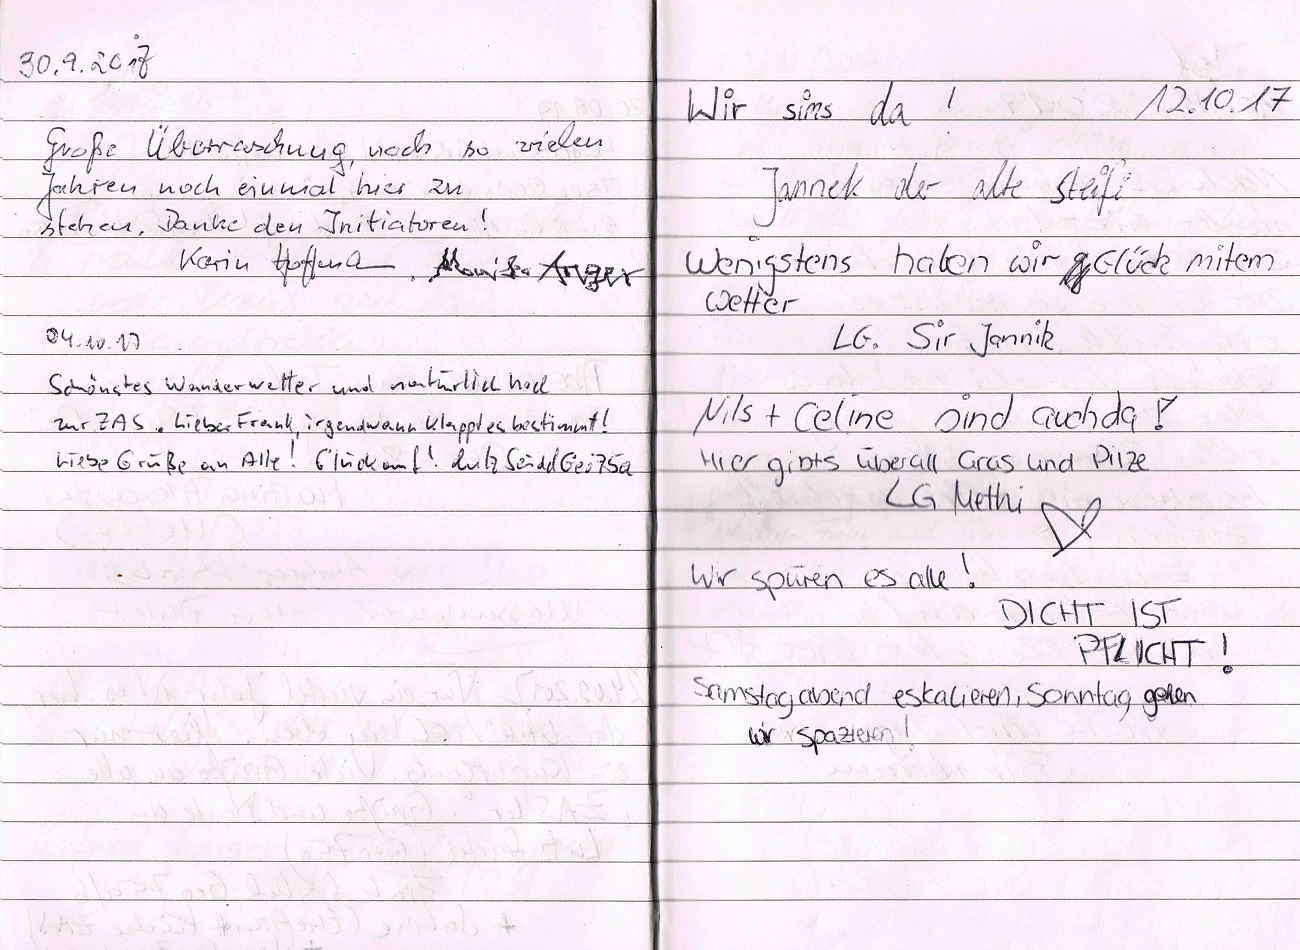 30.9.2017
Große Überraschung, nach so vielen
Jahren noch einmal hier zu
stehen. Danke den Initiatoren!
Karin Hoffmann, Monika Anger
04.10.17
Schönstes Wanderwetter und natürlich hoch
zur ZAS. Lieber Frank, irgendwann klappt es bestimmt!
Liebe Grüße an Alle! Glückauf! Lutz Seidel Geo75a
Wir sims da ! 12.10.17
Jannek der alte steifi
Wenigstens haben wir Glück mitem
wetter
LG. Sir Jannik
Nils + Celine sind auch da !
Hier gibts überall Gras und Pilze
LG Methi
Wir spüren es alle !
DICHT IST
PFLICHT !
Samstag abend eskalieren, Sonntag gehen
wir spazieren !